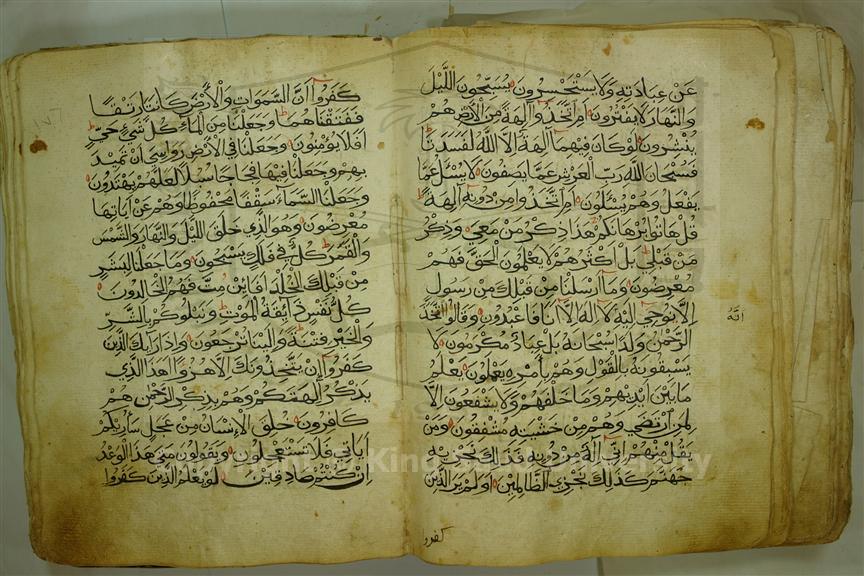 عن عبادته ولا يستحسرون يسبحون الليل
والنهار لا يفترون ام اتخذوا آلهة من الأرض هم
ينشرون لو كان فيهما آلهة إلا الله لفسدتا
فسبحان الله رب العرش عما يصفون لا يسئل عما
يفعل وهم يسئلون أم اتخذوا من دونه آلهة
قل هاتوا برهانكم هذا ذكر من معي وذكر
من قبلي بل أكثرهم لا يعلمون الحق فهم
معرضون وما أرسلنا من قبلك من رسول
إلا نوحي إليه لا اله إلا أنا فاعبدون وقالوا اتخذ
انه
الرحمن ولدا سبحانه بل عباد مكرمون لا
يسبقونه بالقول وهم بأمره يعملون يعلم
ما بين أيديهم وما خلفهم ولا يشفعون إلا
لمن ارتضى وهم من خشيته مشفقون ومن
يقل منهم اني اله من دونه فذلك نجزيه
جهنم كذلك نجزي الظالمين أولم ير الذين
كفروا
كفروا أن السموات والأرض كانتا رتقا
ففتقناهما وجعلنا من الماء كل شيء حي
افلا يؤمنون وجعلنا في الأرض رواسي أن تميد
بهم وجعلنا فيها فجاجا سبلا لعلهم يهتدون
وجعلنا السماء سقفا محفوظا وهم عن آياتها
معرضون وهو الذي خلق الليل والنهار والشمس
والقمر كل في فلك يسبحون وما جعلنا لبشر
من قبلك الخلد أفاين مت فهم الخالدون
كل نفس ذائقة الموت ونبلوكم بالشر
والخير فتنة والينا ترجعون وإذا رآك الذين
كفروا إن يتخذونك الا هزوا اهذا الذي
يذكر الهتكم وهم بذكر الرحمن هم
كافرون خلق الإنسان من عجل سأريكم
آياتي فلا تستعجلون ويقولون متى هذا الوعد
ان كنتم صادقين لو يعلم الذين كفروا